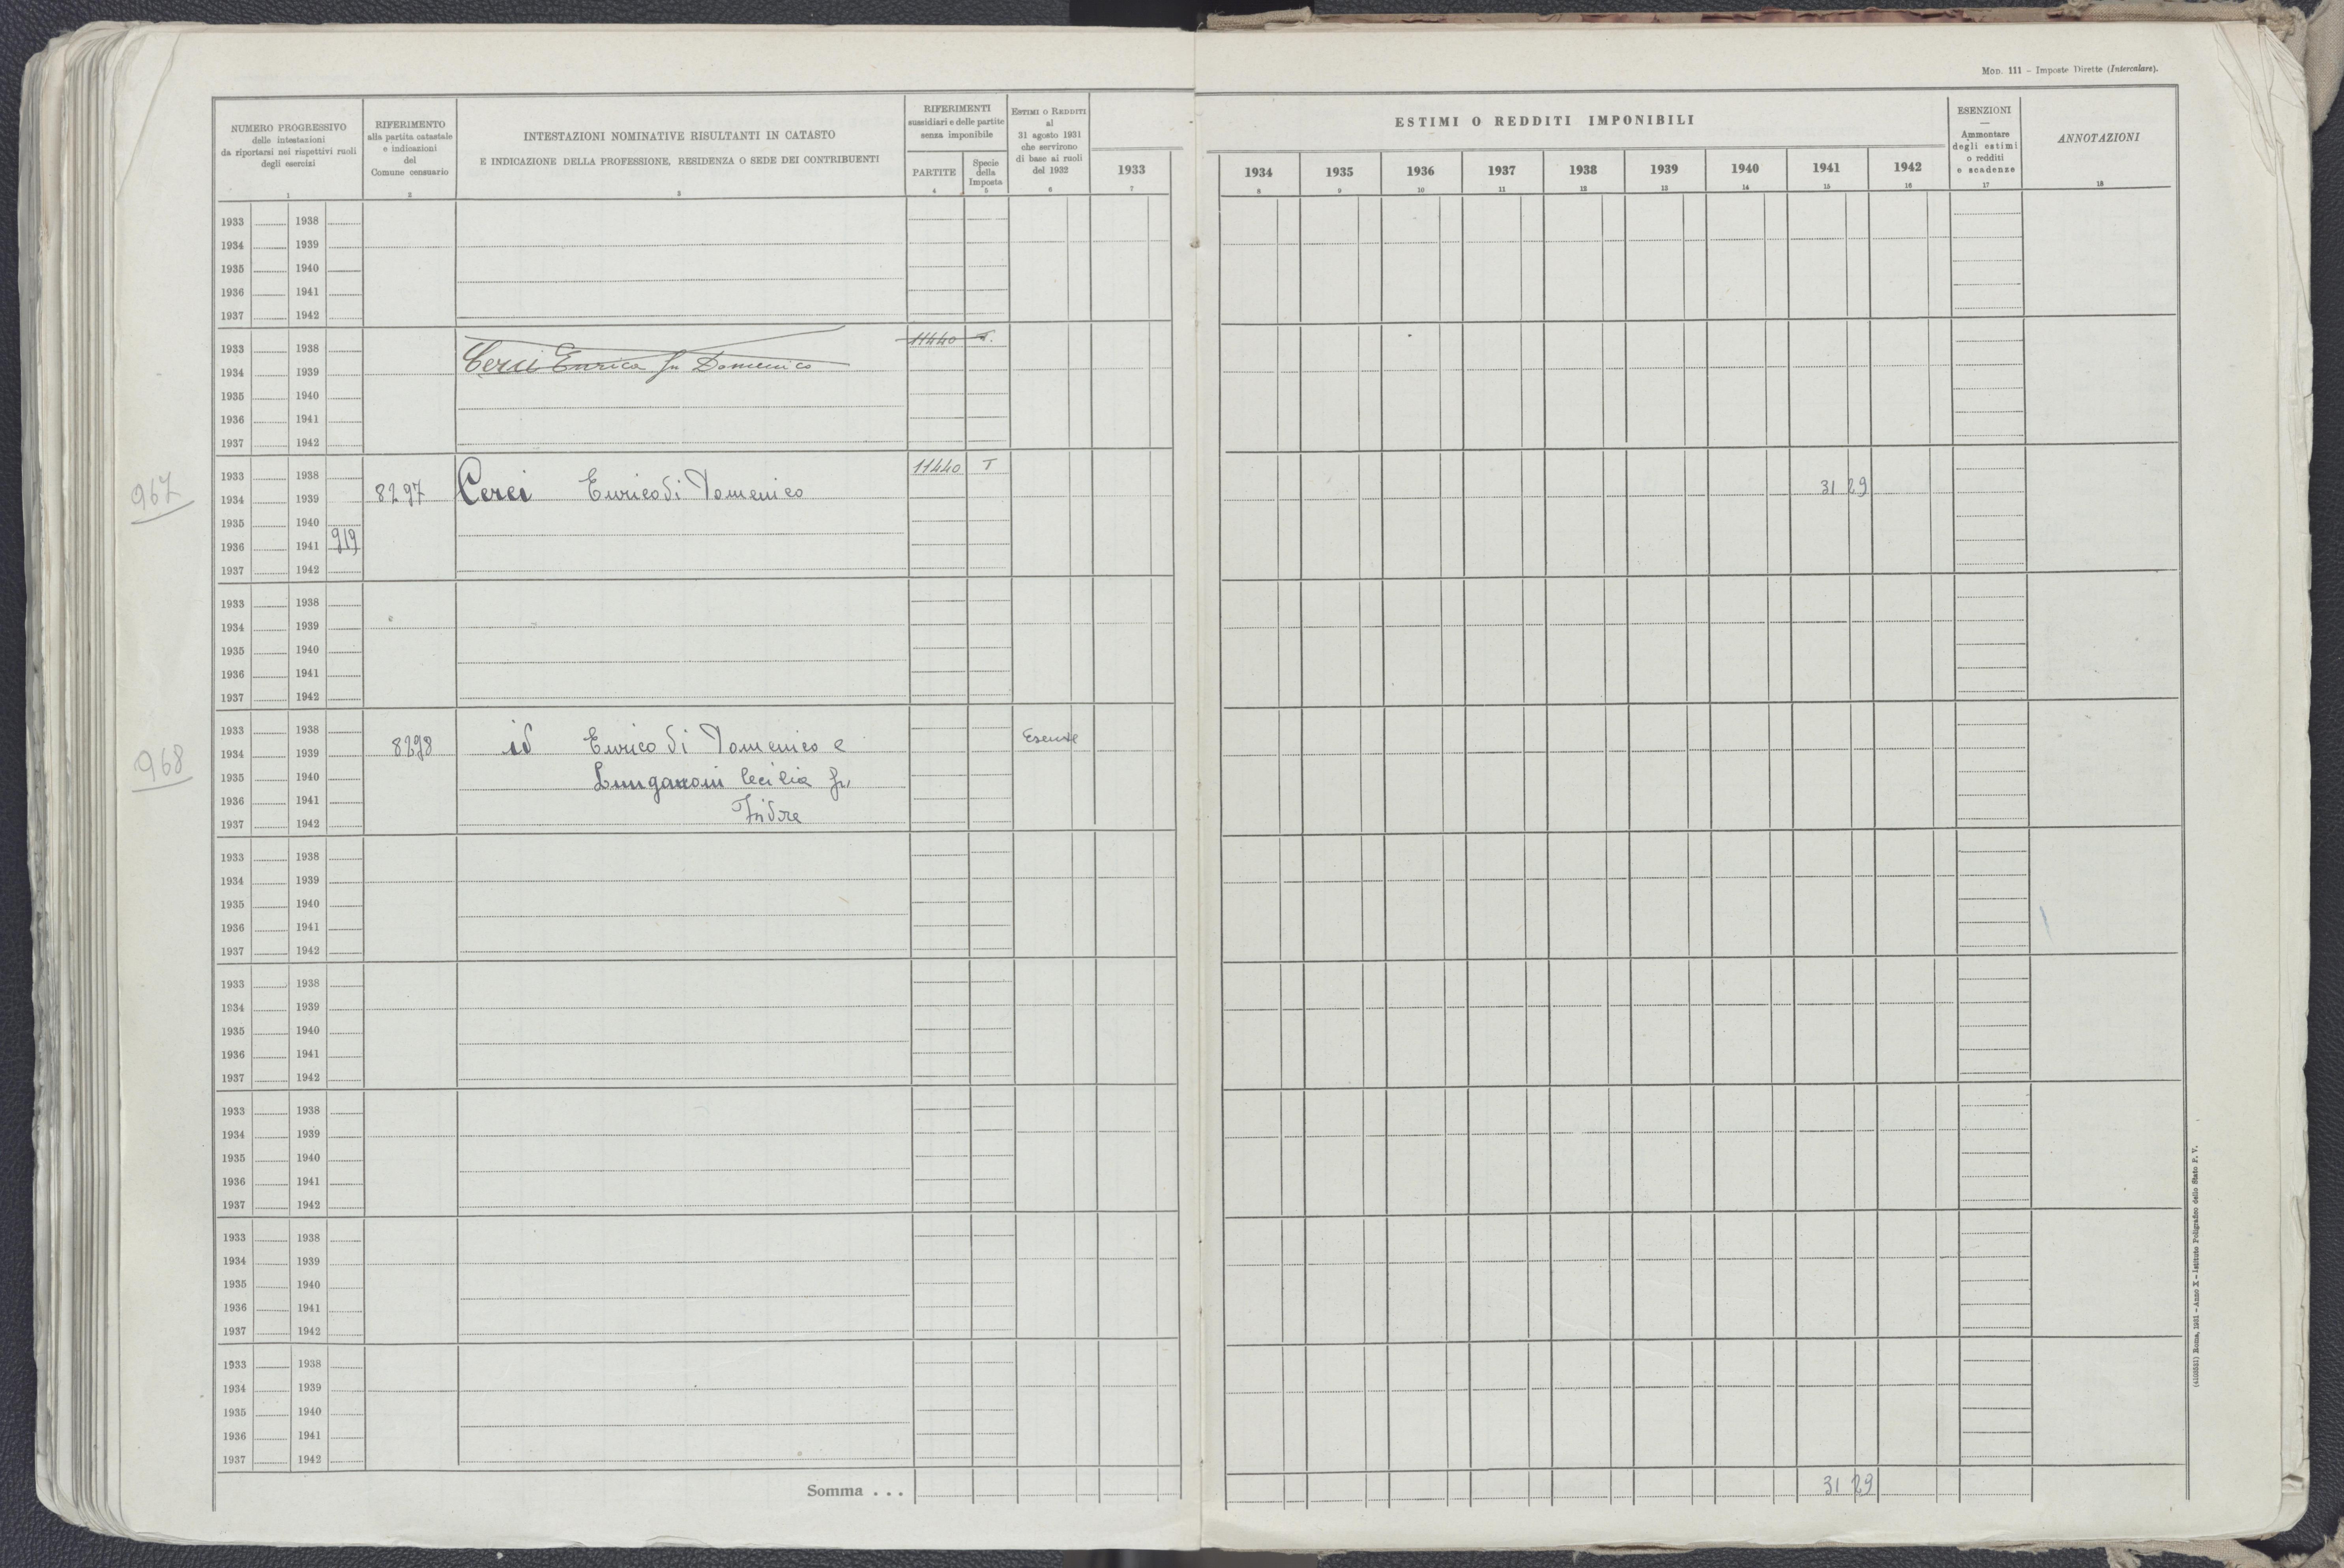 Mod. 111 - Imposte Dirette (Intercalare).
NUMERO PROGRESSIVO
delle intestazioni
da riportarsi nei rispettivi ruoli
degli esercizi
1
RIFERIMENTO
alla partita catastale
e indicazioni
del
Comune censuario
2
INTESTAZIONI NOMINATIVE RISULTANTI IN CATASTO
E INDICAZIONE DELLA PROFESSIONE, RESIDENZA O SEDE DEI CONTRIBUENTI
3
RIFERIMENTI
sussidiari e delle partite
senza imponibile
PARTITE
4
Specie
della
Imposta
5
ESTIMI O REDDITI
al
31 agosto 1931
che servirono
di base ai ruoli
del 1932
6
1933
7
ESTIMI O REDDITI IMPONIBILI
1934 1935 1936 1937 1938 1939 1940 1941 1942
8 9 10 11 12 13 14 15 16
ESENZIONI
—
Ammontare
degli estimi
o redditi
e scadenze
17
ANNOTAZIONI
18
1933 1938
1934 1939
1935 1940
1936 1941
1937 1942
11440 T.
1933 1938
Cerci Enrico fu Domenico
1934 1939
1935 1940
1936 1941
1937 1942
1933 1938 11440 T
967 1934 1939 8297 Cerci Enrico di Domenico 31 29
1935 1940
1936 1941 919
1937 1942
1933 1938
1934 1939
1935 1940
1936 1941
1937 1942
1933 1938 Esente
968 1934 1939 8298 id Enrico di Domenico e
1935 1940 Lungaroni Cecilia fu
1936 1941
1937 1942
1933 1938
1934 1939
1935 1940
1936 1941
1937 1942
1933 1938
1934 1939
1935 1940
1936 1941
1937 1942
1933 1938
1934 1939
1935 1940
1936 1941
1937 1942
1933 1938
1934 1939
1935 1940
1936 1941
1937 1942
1933 1938
1934 1939
1935 1940
1936 1941
1937 1942
Somma . . . 31 29
(4103521) Roma, 1931 - Anno X - Istituto Poligrafico dello Stato P. V.